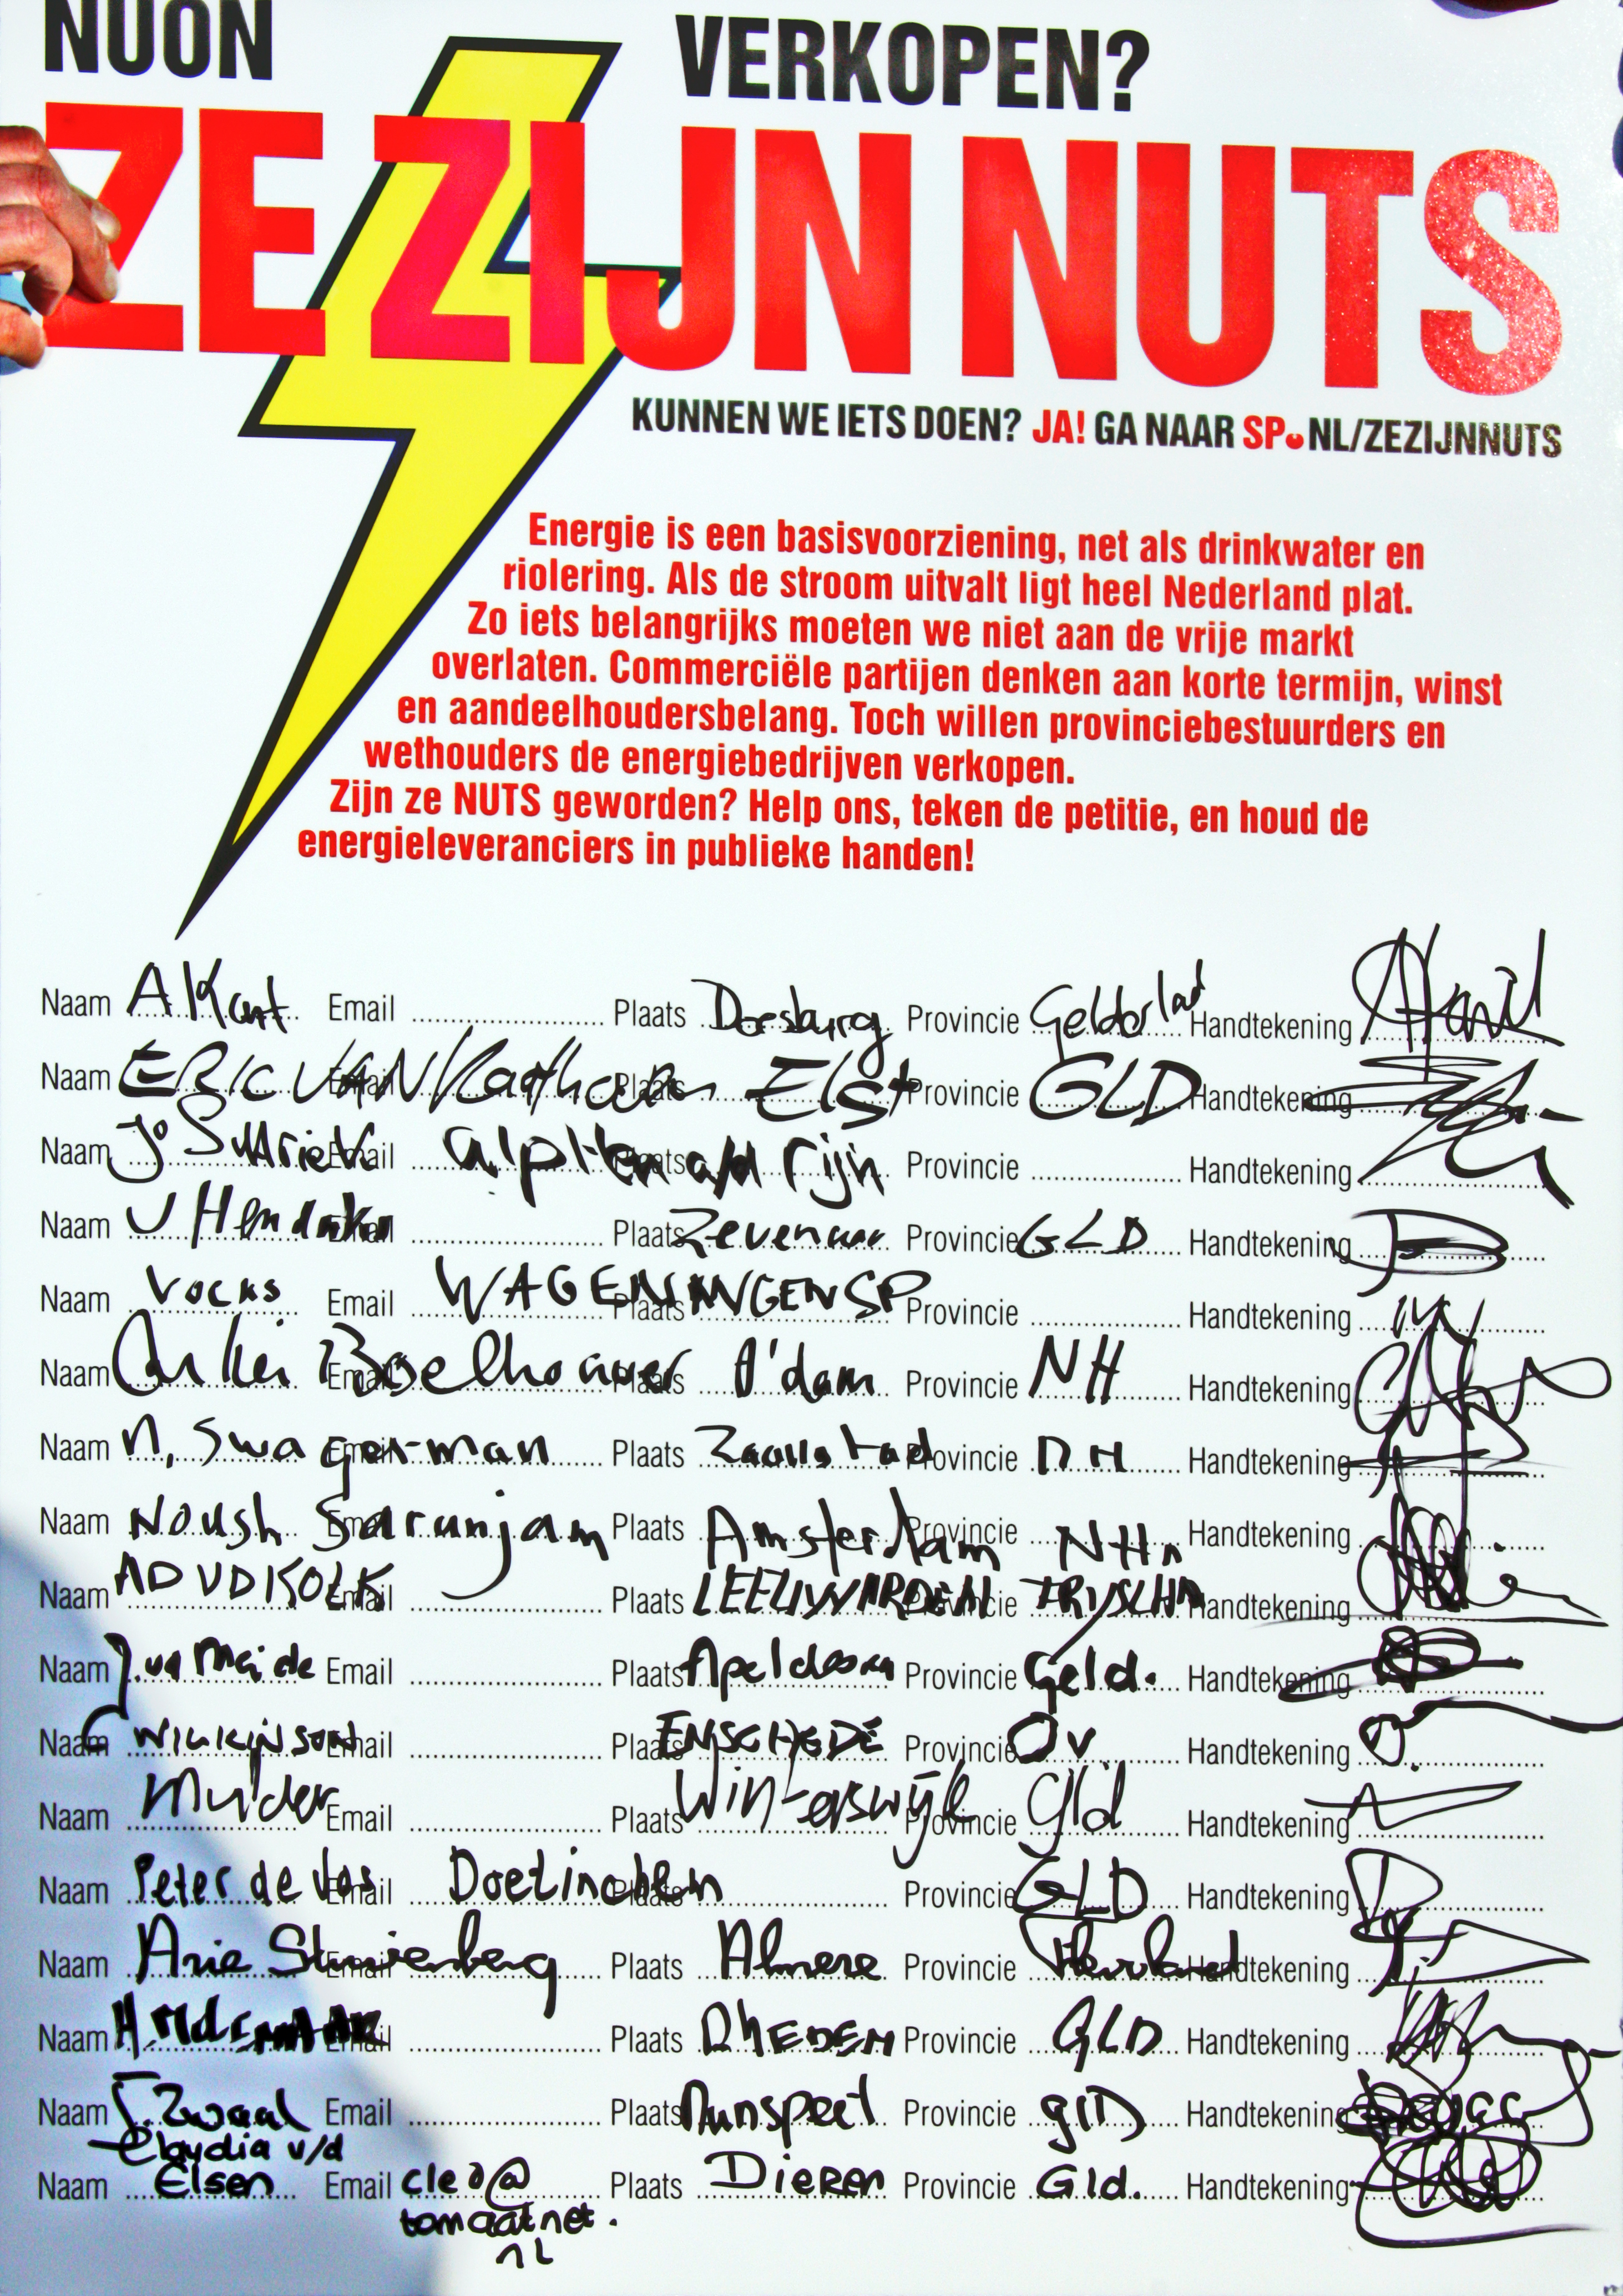 NUON VERKOPEN?
ZE ZIJN NUTS
KUNNEN WE IETS DOEN? JA! GA NAAR SP.NL/ZEZIJNNUTS
Energie is een basisvoorziening, net als drinkwater en
riolering. Als de stroom uitvalt ligt heel Nederland plat.
Zo iets belangrijks moeten we niet aan de vrije markt
overlaten. Commerciële partijen denken aan korte termijn, winst
en aandeelhoudersbelang. Toch willen provinciebestuurders en
wethouders de energiebedrijven verkopen.
Zijn ze NUTS geworden? Help ons, teken de petitie, en houd de
energieleveranciers in publieke handen!
Naam A Kant Email Plaats Doesburg Provincie Gelderlad Handtekening
Naam ERIC VAN Kaathoven Email Plaats Elst Provincie GLD Handtekening
Naam Jo Email Alphen a/d Rijn Plaats Provincie Handtekening
Naam J Hendriks Email Plaats Zevenaar Provincie GLD Handtekening
Naam Vocks Email WAGENINGEN SP Plaats Provincie Handtekening
Naam Boelhouwer Email Plaats A'dam Provincie NH Handtekening
Naam N. Swagerman Email Plaats Zaanstad Provincie NH Handtekening
Naam Noush Sarunjam Email Plaats Amsterdam Provincie NH Handtekening
Naam AD VD KOLK Email Plaats LEEUWARDEN Provincie Handtekening
Naam J. vd Meide Email Plaats Apeldoorn Provincie Geld. Handtekening
Naam WILKINSON Email Plaats ENSCHEDE Provincie Ov Handtekening
Naam Mulder Email Plaats Winterswijk Provincie Gld Handtekening
Naam Peter de Vos Email Doetinchem Plaats Provincie GLD Handtekening
Naam Arie Email Plaats Almere Provincie Handtekening
Naam Email Plaats RHEDEN Provincie GLD Handtekening
Naam Zwaal Email Plaats Nunspeet Provincie glD Handtekening
Claudia v/d
Naam Elsen Email cleo@ Plaats Dieren Provincie Gld. Handtekening
tomaatnet.
nl